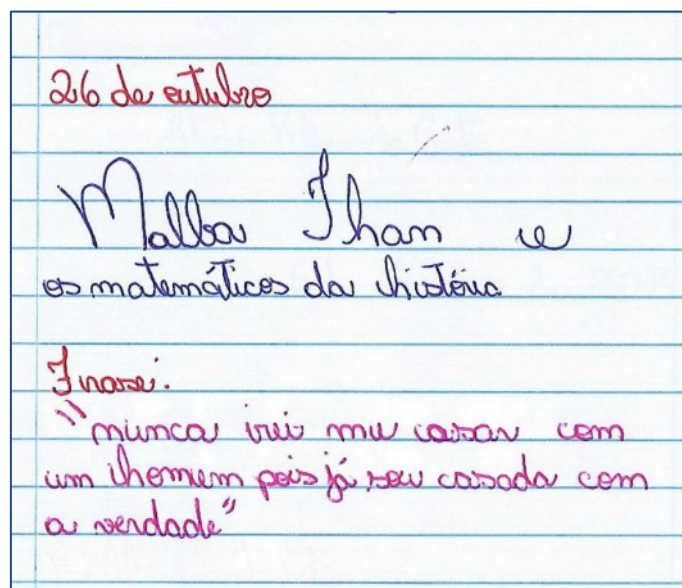 26 de outubro
Malba Than e
os matemáticos da história
Frase:
"nunca irei me casar com
um homem pois já sou casada com
a verdade"